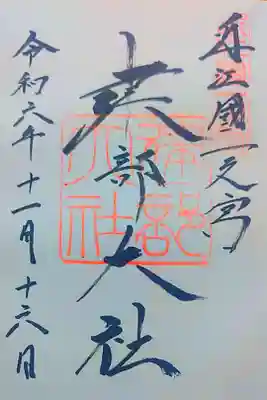 近江國一之宮
建部大社
令和六年十一月十六日
建部大社